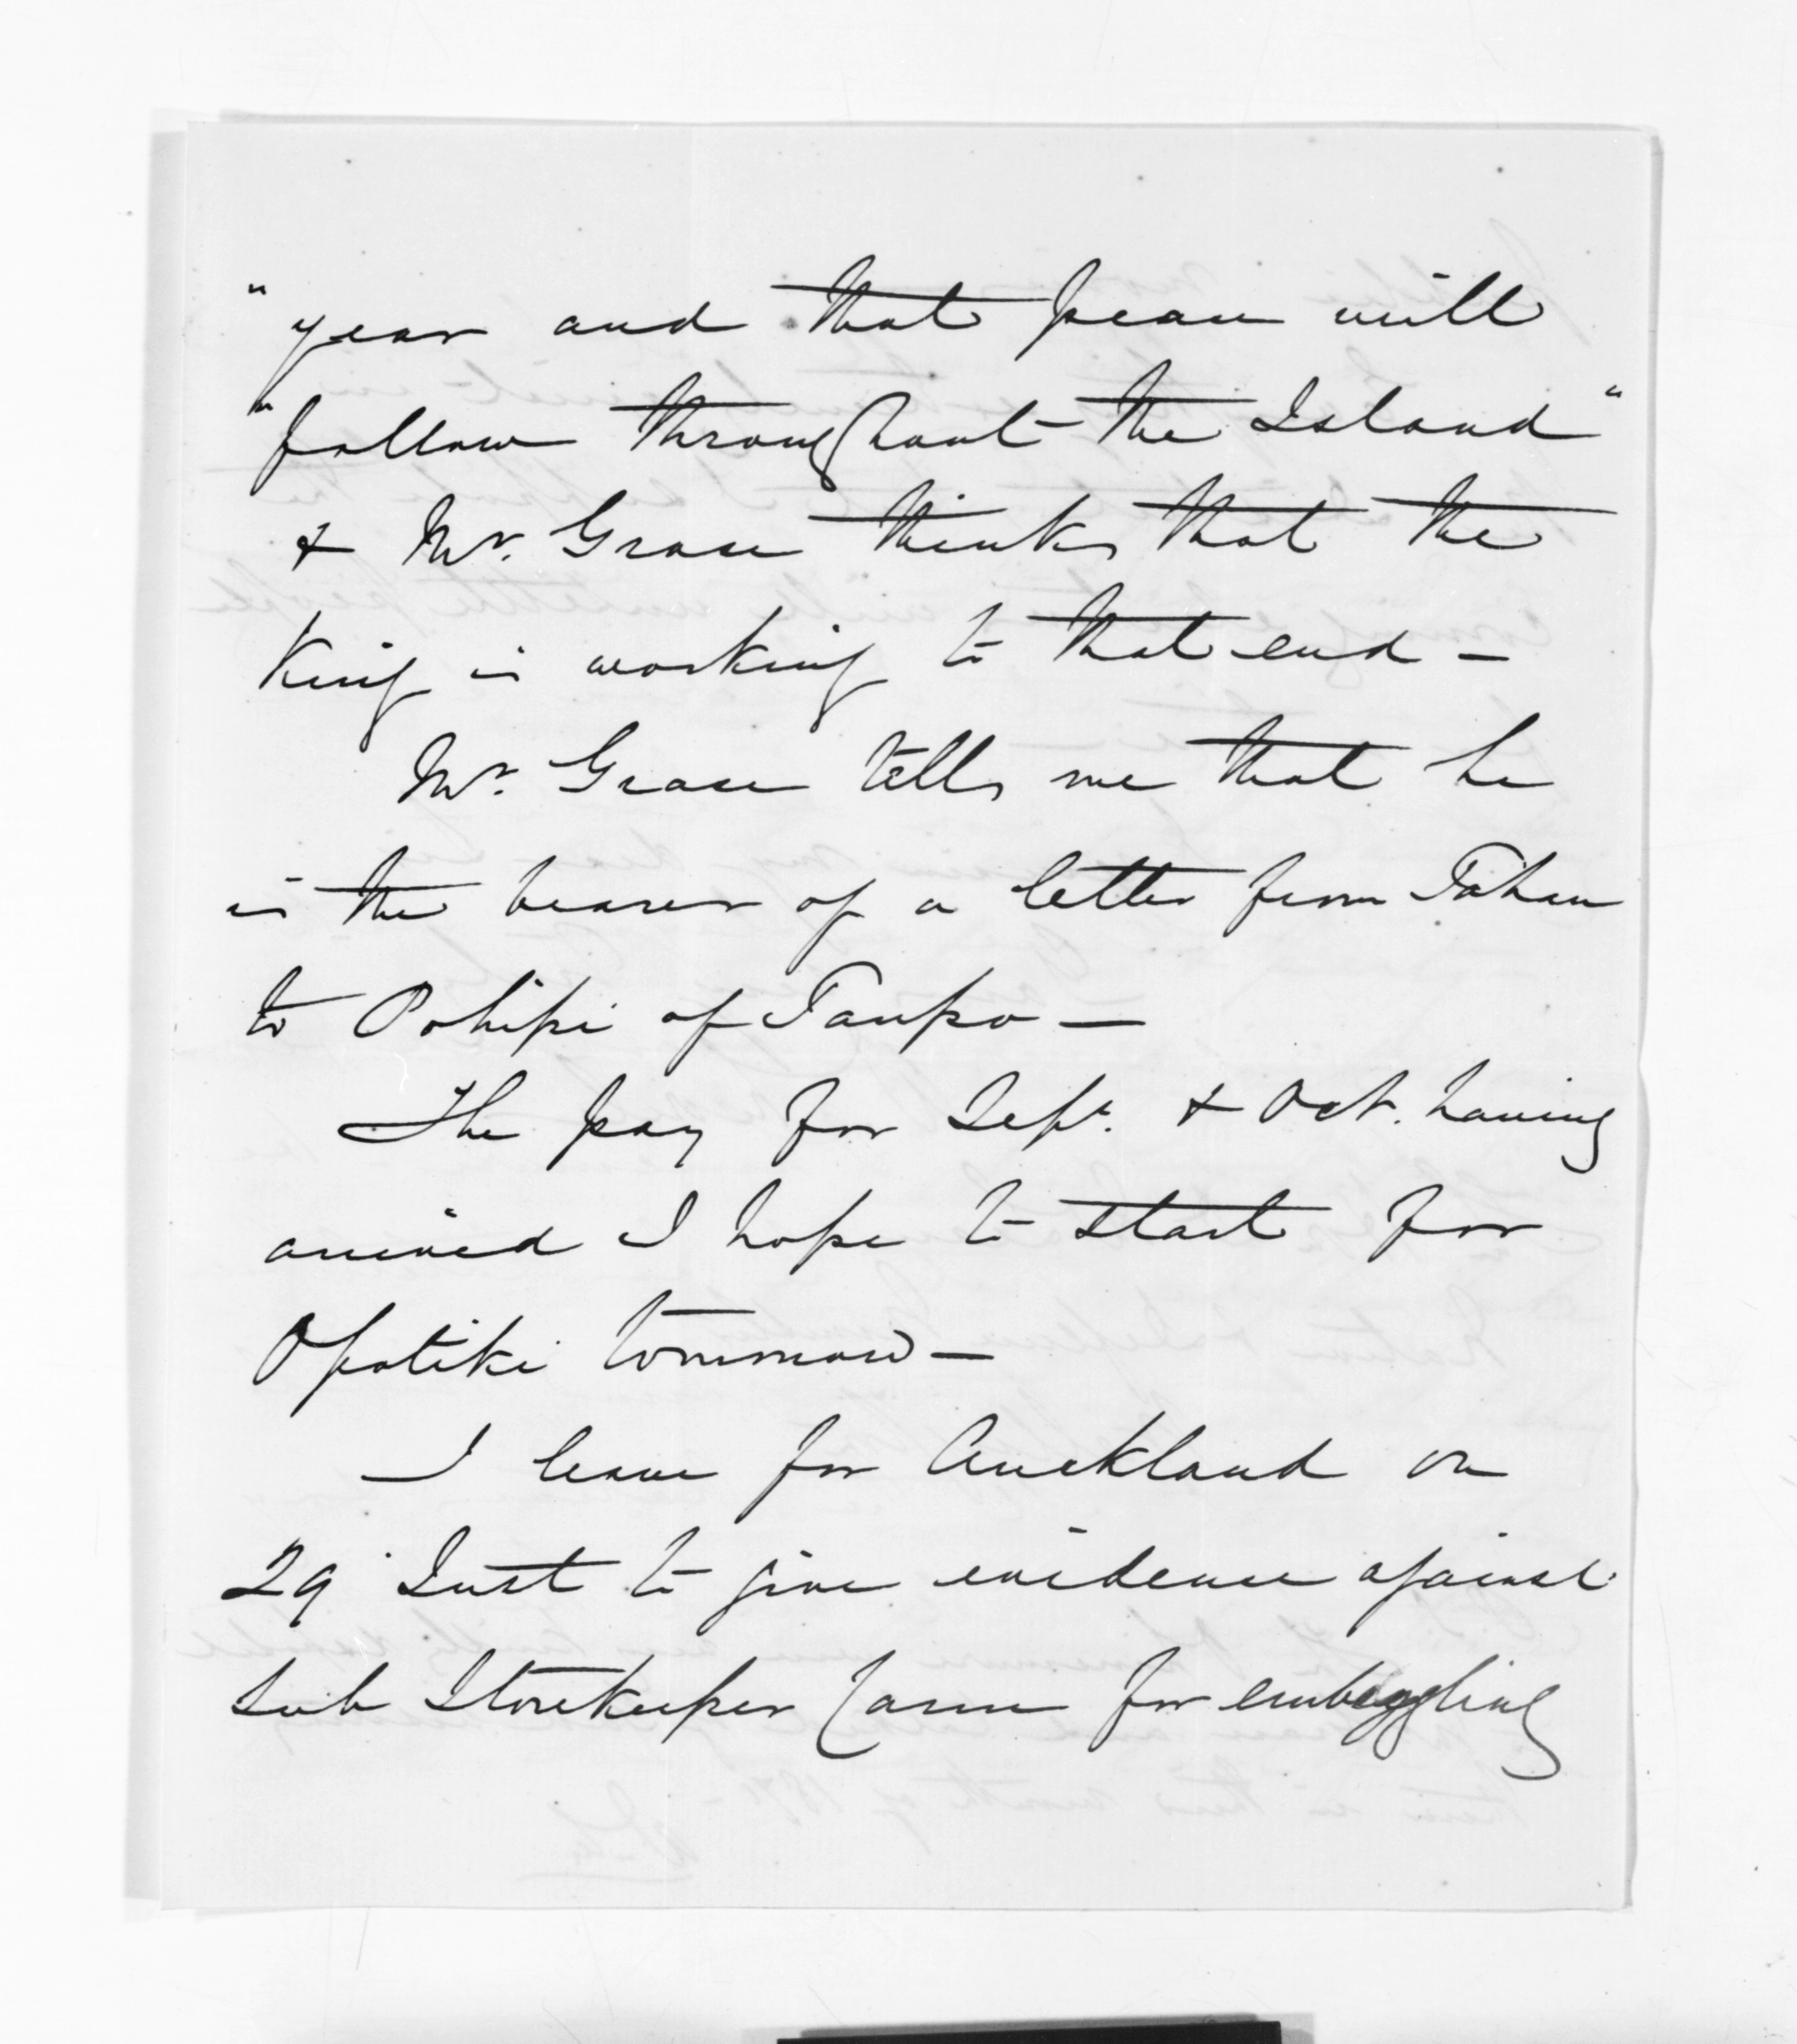 "year and that peace will
"follow throughout the Island"
& Mr. Grace thinks that the
King is working to that end -
Mr. Grace tells me that he
is the bearer of a letter from Tahau
to Pohipi of Taupo -
The pay for Sept. & Oct. having
arrived I hope to start for
Opotiki tommorow -
I leave for Auckland on
29 Inst to give evidence against
Sub Storekeeper for embezzling